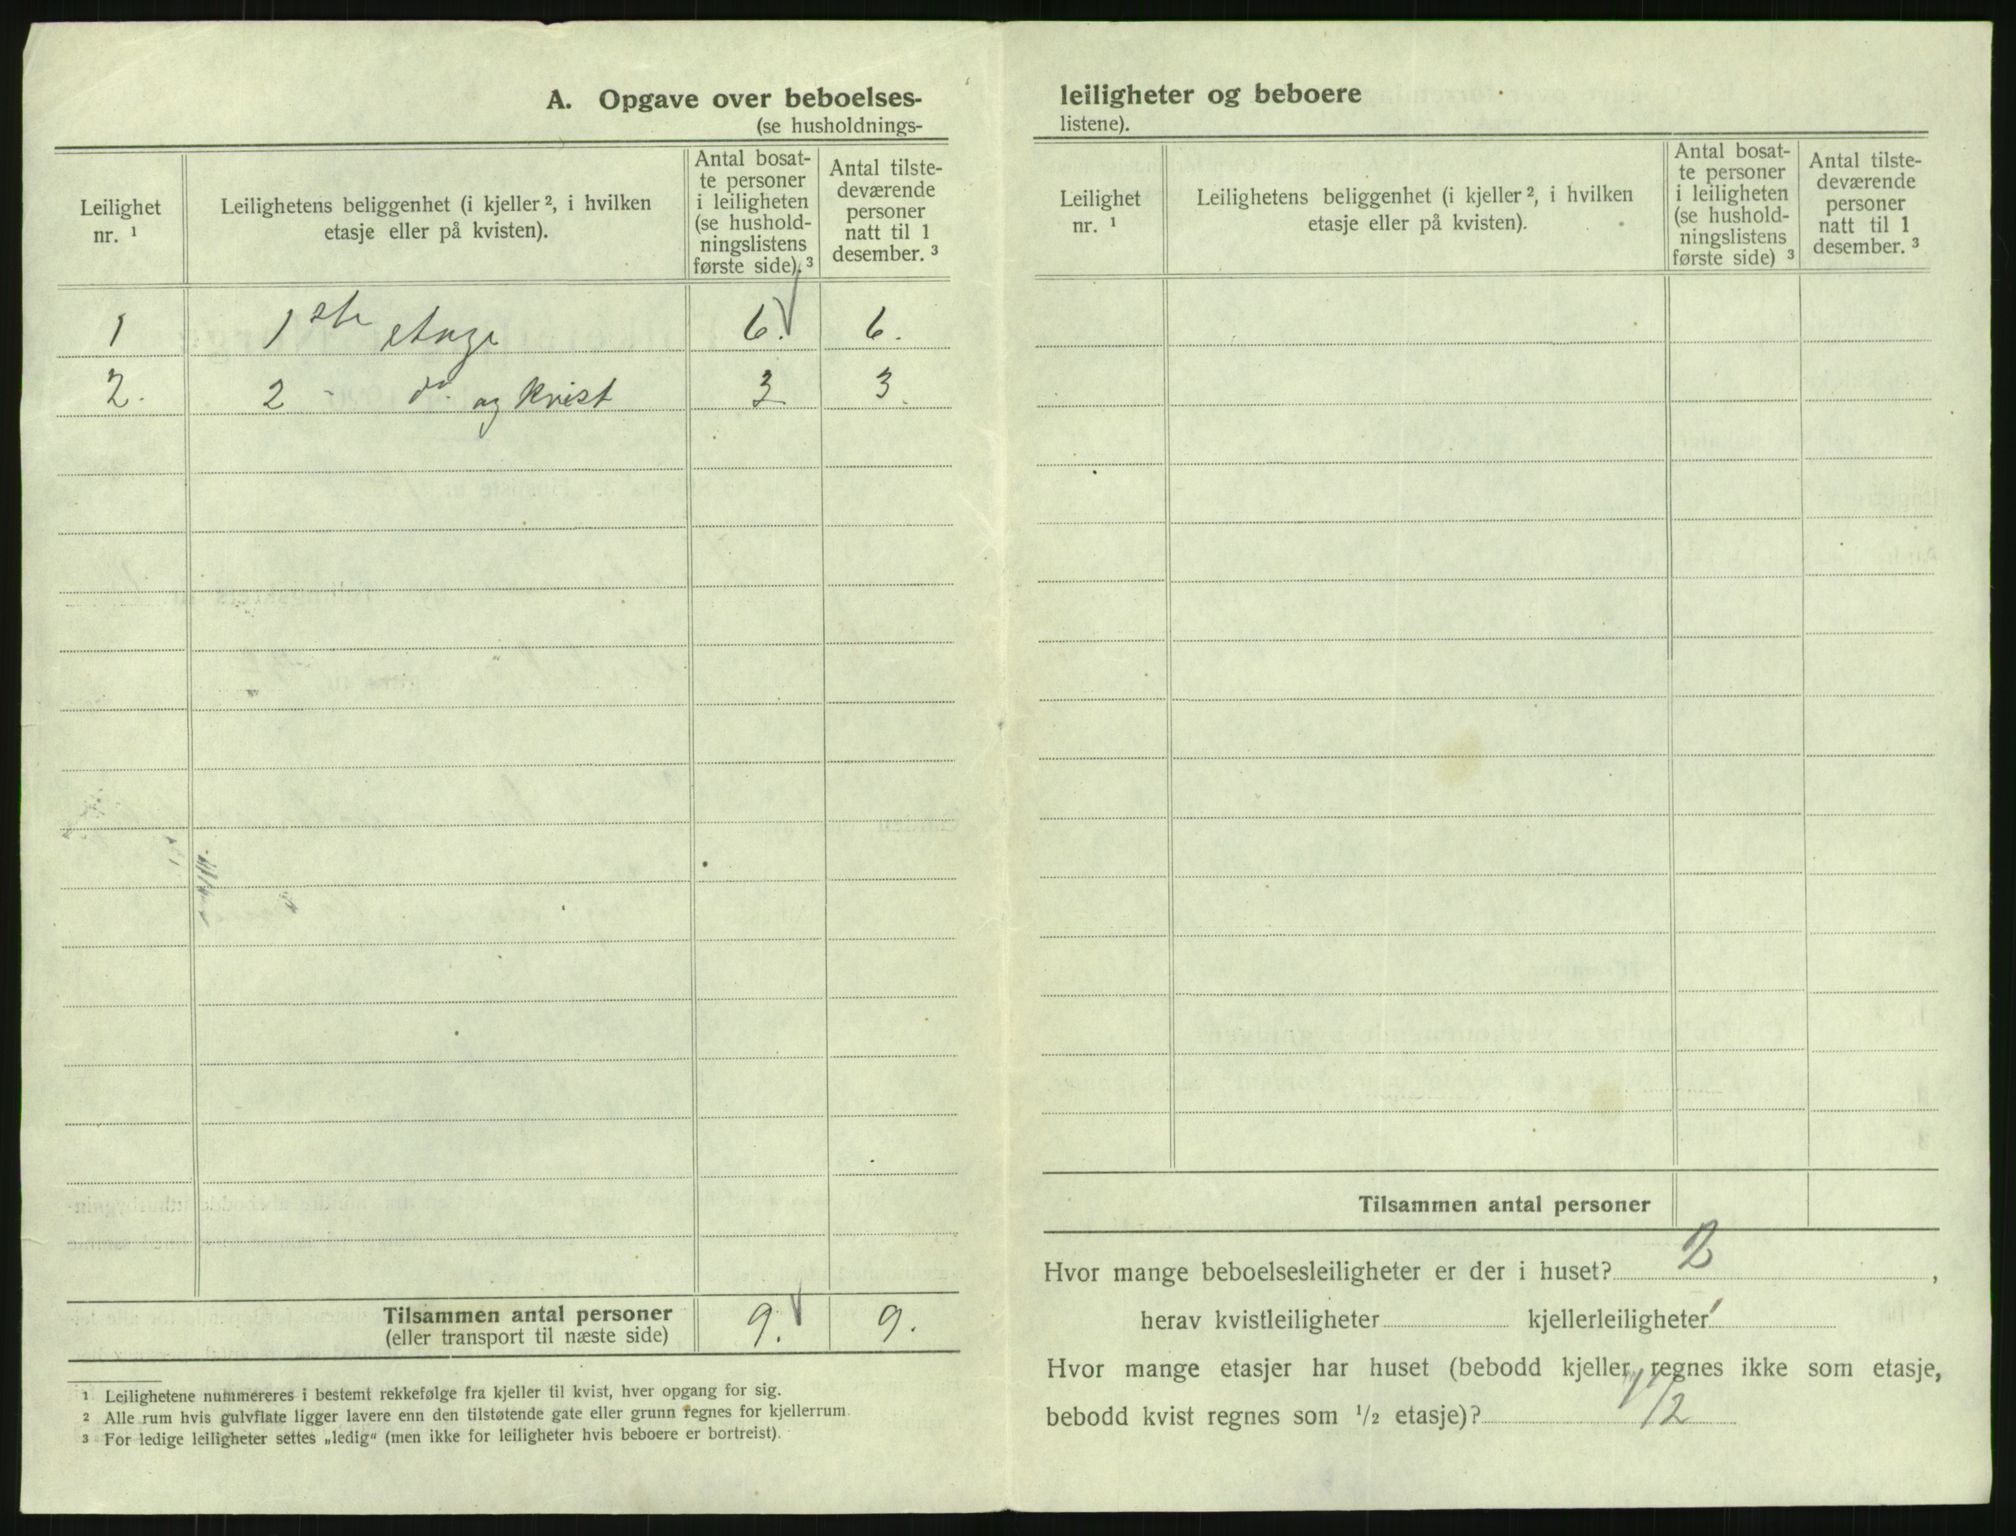 A. Opgave over beboelses-
(se husholdnings-
Leilighet
nr. ¹
Leilighetens beliggenhet (i kjeller ², i hvilken
etasje eller på kvisten).
Antal bosat-
te personer
i leiligheten
(se hushold-
ningslistens
første side). ³
Antal tilste-
deværende
personer
natt til 1
desember. ³
1 1ste etage 6. 6.
2. 2 - do. og kvist 3 3.
Tilsammen antal personer
(eller transport til næste side)
9. 9.
¹ Leilighetene nummereres i bestemt rekkefølge fra kjeller til kvist, hver opgang for sig.
² Alle rum hvis gulvflate ligger lavere enn den tilstøtende gate eller grunn regnes for kjellerrum.
³ For ledige leiligheter settes „ledig“ (men ikke for leiligheter hvis beboere er bortreist).
leiligheter og beboere
listene).
Leilighet
nr. ¹
Leilighetens beliggenhet (i kjeller ², i hvilken
etasje eller på kvisten).
Antal bosat-
te personer
i leiligheten
(se hushold-
ningslistens
første side) ³
Antal tilste-
deværende
personer
natt til 1
desember. ³
Tilsammen antal personer
Hvor mange beboelsesleiligheter er der i huset? 2 ,
herav kvistleiligheter kjellerleiligheter
Hvor mange etasjer har huset (bebodd kjeller regnes ikke som etasje,
bebodd kvist regnes som ¹/₂ etasje)?